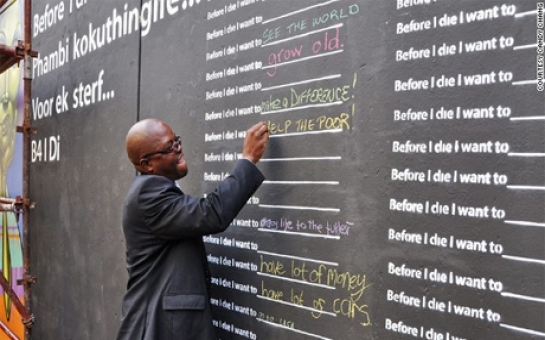 Before I di
Phambi kokuthinghe...
Voor ek sterf...
B4 I Di
Before I die I want to
Before I die I want to SEE THE WORLD
Before I die I want to grow old.
Before I die I want to
Before I die I want to make a DIFFERENCE!
Before I die I want to HELP THE POOR!
Before I die I want to
Before I die I want to
Before I die I want to
Before I die I want to enjoy life to the fullest
Before I die I want to
Before I die I want to have lots of Money
Before I die I want to have lots of cars
Before I die I want to
Before I die I want to
Before I die I want to
Before I die I want to
Before I die I want to
Before I die I want to
Before I die I want to
Before I die I want to
Before I die I want to
Before I die I want to
Before I die I want to
Before I die I want to
Before I die I want to
COURTESY CANDY CHANG